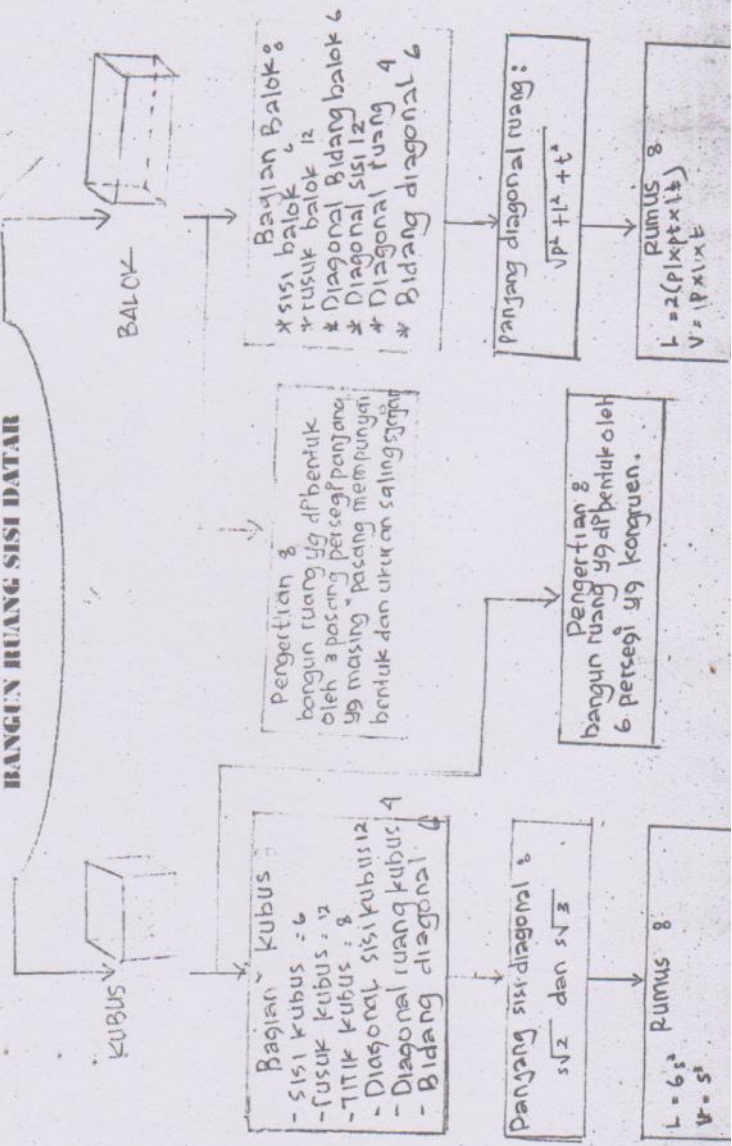 BANGUN RUANG SISI DATAR
KUBUS
Bagian" kubus :
- sisi kubus : 6
- rusuk kubus : 12
- TITIK kubus : 8
- Diagonal sisi kubus 12
- Diagonal ruang kubus 4
- Bidang diagonal 6
Panjang sisi diagonal :
s√2 dan s√3
Rumus :
L = 6s²
V = s³
Pengertian :
bangun ruang yg dibentuk
oleh 3 pasang persegi panjang
yg masing" pasang mempunyai
bentuk dan ukuran saling
Pengertian :
bangun ruang yg dibentuk oleh
6 persegi yg kongruen.
BALOK
Bagian Balok :
* sisi balok 6
* rusuk balok 12
* Diagonal Bidang balok 6
* Diagonal sisi 12
* Diagonal ruang 4
* Bidang diagonal 6
panjang diagonal ruang :
√p² + l² + t²
Rumus :
L = 2(plxptxlt)
V = pxlxt